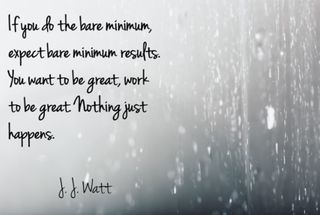 If you do the bare minimum,
expect bare minimum results.
You want to be great, work
to be great. Nothing just
happens.
J. J. Watt